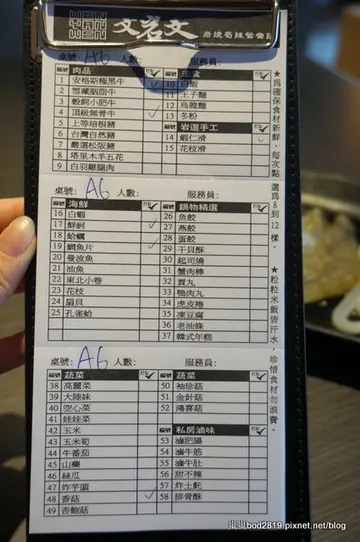 文君文
桌號: A6 人數: 服務員:
編號 肉品
1 安格斯極黑牛
2 雪藏胭脂牛
3 穀飼小肥牛
4 頂級無骨牛
5 上等培根豬
6 台灣自然豬
7 嚴選松阪豬
8 塔里木羊五花
9 白羽雞腿肉
10 白蝦
11 王子麵
12 烏龍麵
13 冬粉
編號 岩選手工
14 蝦仁滑
15 花枝滑
★為確保食材新鮮，每次點選為8到12樣。
★粒粒米飯皆汗水，珍惜食材勿浪費。
桌號: A6 人數: 服務員:
編號 海鮮
16 白蝦
17 鮮蚵
18 蛤蠣
19 鯛魚片
20 曼波魚
21 油魚
22 東北小卷
23 花枝
24 扇貝
25 孔雀蛤
編號 鍋物精選
26 魚餃
27 燕餃
28 蛋餃
29 干貝酥
30 起司燒
31 蟹肉棒
32 貢丸
33 鴨肉丸
34 虎皮捲
35 凍豆腐
36 老油條
37 韓式年糕
桌號: A6 人數: 服務員:
編號 蔬菜
38 高麗菜
39 大陸妹
40 空心菜
41 娃娃菜
42 玉米
43 玉米筍
44 牛番茄
45 山藥
46 絲瓜
47 炸芋頭
48 香菇
49 杏鮑菇
編號 蔬菜
50 袖珍菇
51 金針菇
52 鴻喜菇
編號 私房滷味
53 滷肥腸
54 滷牛筋
55 滷牛肚
56 甜不辣
57 炸土魠
58 排骨酥
bod2819.pixnet.net/blog